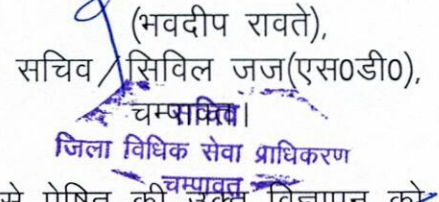 (भवदीप रावते),
सचिव/सिविल जज(एस0डी0),
चम्पावत।
सचिव
जिला विधिक सेवा प्राधिकरण
चम्पावत
से प्रेषित की उक्त विज्ञापन को